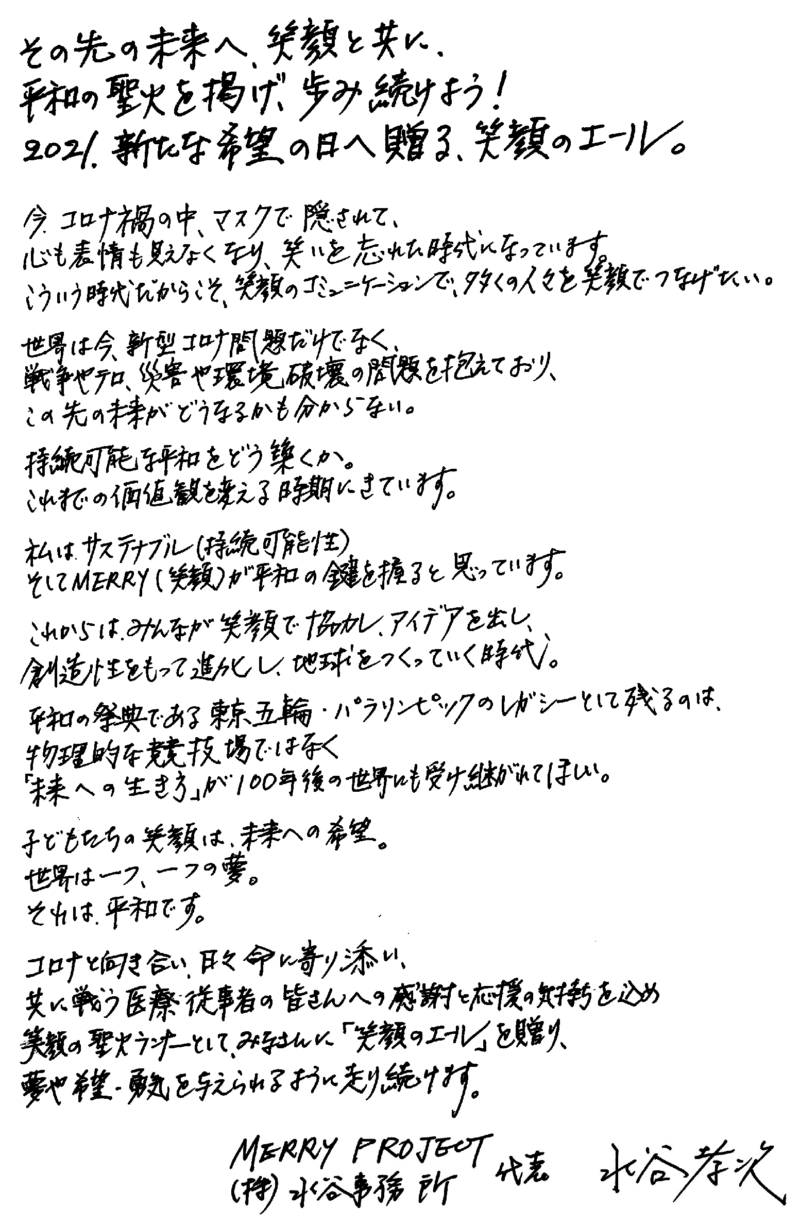 その先の未来へ、笑顔と共に、
平和の聖火を掲げ、歩み続けよう!
2021.新たな希望の日へ贈る、笑顔のエール。
今、コロナ禍の中、マスクで隠されて、
心も表情も見えなくなり、笑いを忘れた時代になっています。
こういう時代だからこそ、笑顔のコミュニケーションで、多くの人々を笑顔でつなげたい。
世界は今、新型コロナ問題だけでなく、
戦争やテロ、災害や環境破壊の問題を抱えており、
この先の未来がどうなるかも分からない。
持続可能な平和をどう築くか。
これまでの価値観を変える時期にきています。
私は、サステナブル(持続可能性)
そしてMERRY(笑顔)が平和の鍵を握ると思っています。
これからは、みんなが笑顔で協力し、アイデアを出し、
創造性をもって進化し、地球をつくっていく時代。
平和の祭典である東京五輪・パラリンピックのレガシーとして残るのは、
物理的な競技場ではなく
「未来への生き方」が100年後の世界にも受け継がれてほしい。
子どもたちの笑顔は、未来への希望。
世界は一つ、一つの夢。
それは、平和です。
コロナと向き合い、日々命に寄り添い、
共に戦う医療従事者の皆さんへの感謝と応援の気持ちを込め
笑顔の聖火ランナーとして、みなさんに「笑顔のエール」を贈り、
夢や希望・勇気を与えられるように走り続けます。
MERRY PROJECT
(株)水谷事務所 代表 水谷孝次